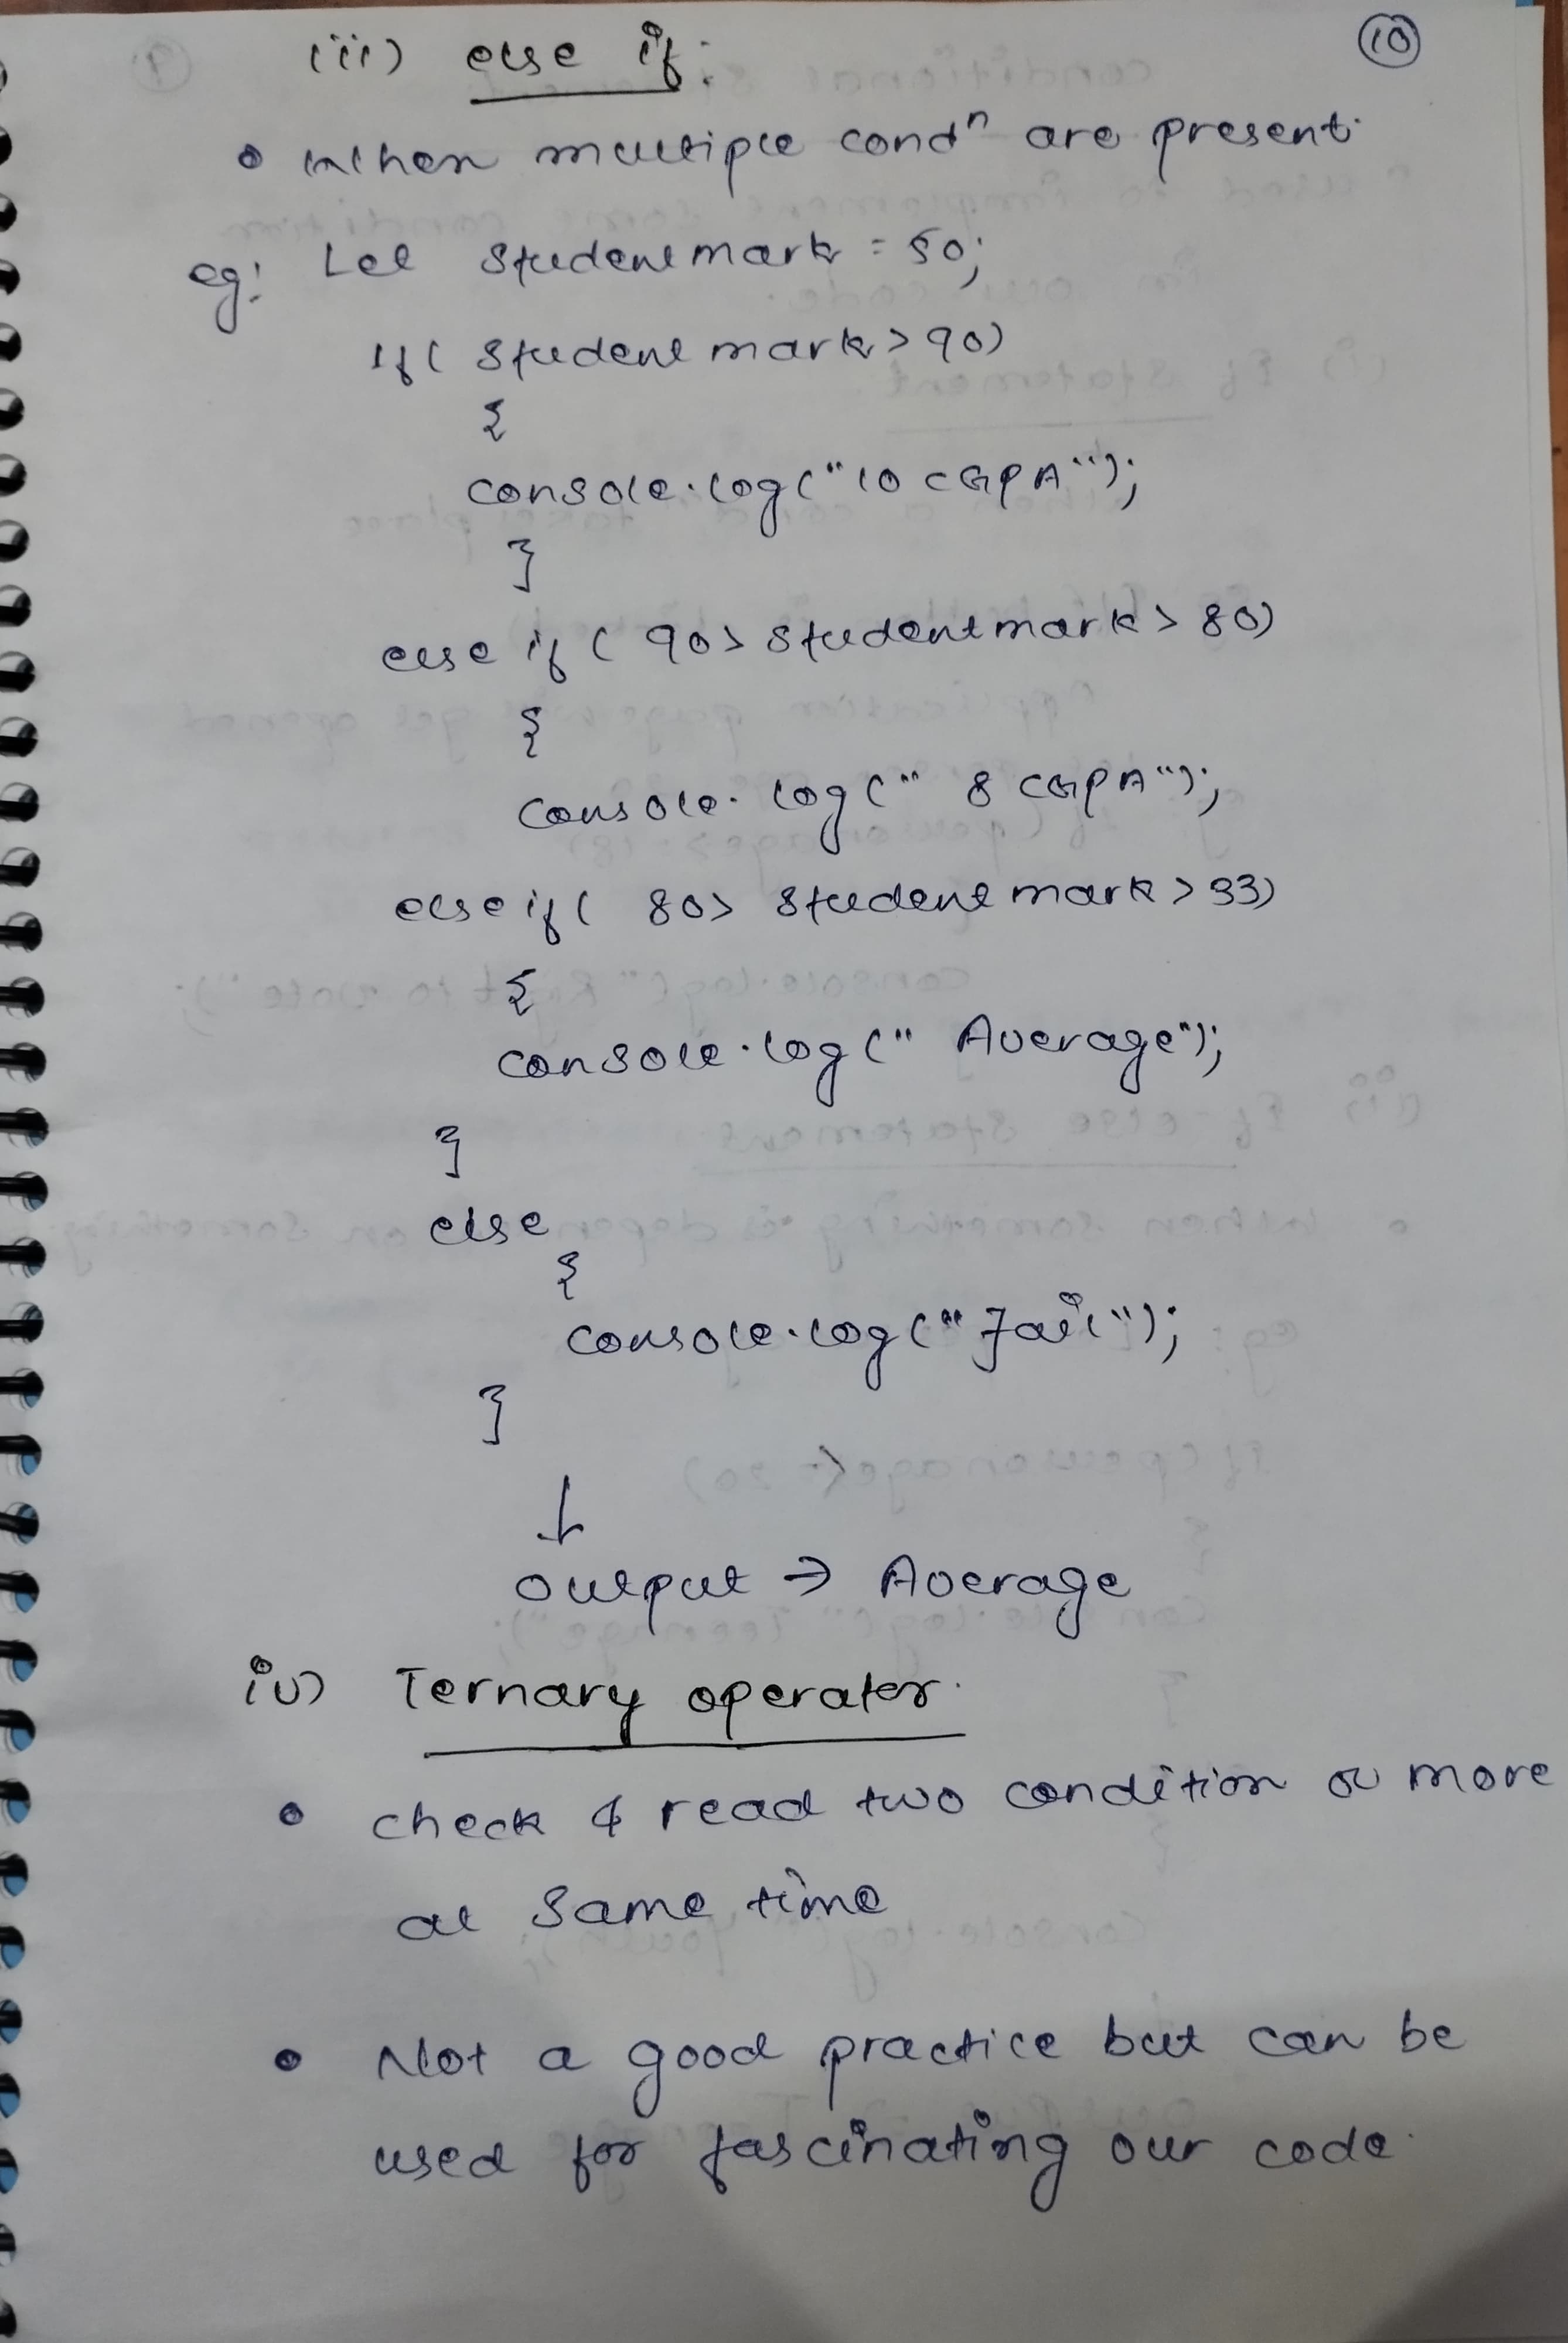 (iii) else if: 10
• When multiple condⁿ are present.
eg: Let studentmark = 50;
If( studentmark > 90)
{
console.log("10 CGPA");
}
else if ( 90> studentmark > 80)
{
console.log(" 8 CGPA");
else if( 80> studentmark > 33)
{
console.log(" Average");
}
else
{
console.log("fail");
}
↓
output → Average
iv) Ternary operator.
• check & read two condition or more
at same time
• Not a good practice but can be
used for fascinating our code.